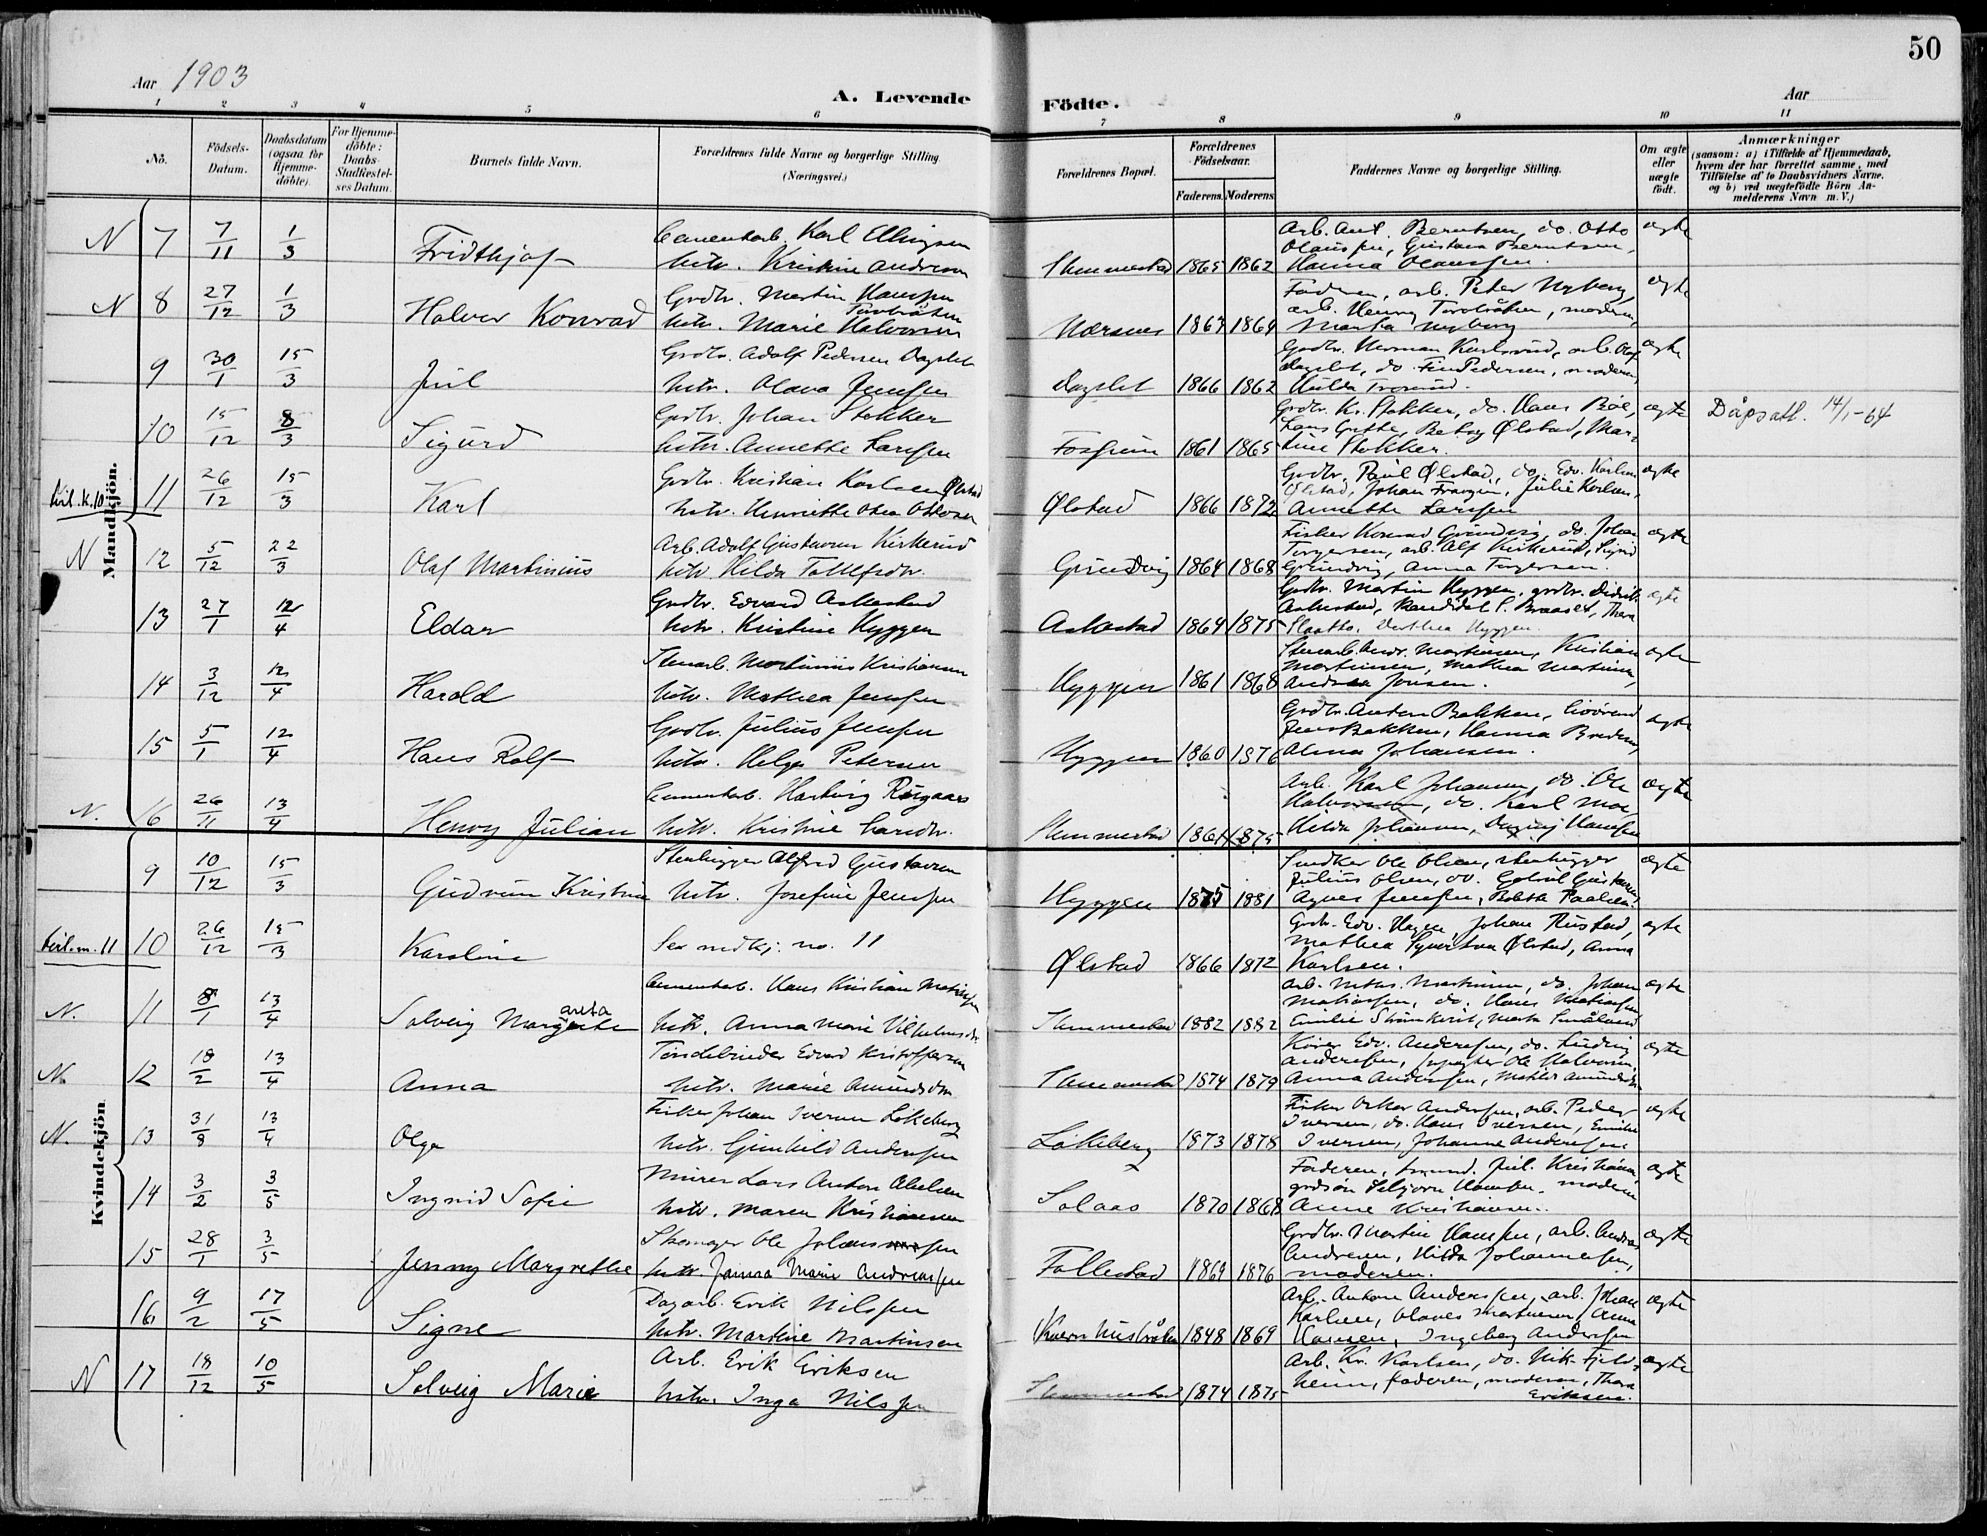 50
Aar 1903
A. Levende Födte.
Aar
1 2 3 4 5 6 7 8 9 10 11
No.
Födsels-Datum.
Daabsdatum (ogsaa for Hjemme-döbte).
For Hjemme-döbte: Daabs-Stadfestel-ses Datum.
Barnets fulde Navn.
Forældrenes fulde Navne og borgerlige Stilling (Næringsvei.)
Forældrenes Bopæl.
Forældrenes Födselsaar.
Faderens. Moderens.
Faddernes Navne og borgerlige Stilling.
Om ægte eller uægte födt.
Anmærkninger
(saasom: a) i Tilfælde af Hjemmedaab, hvem der har forrettet samme, med Tilföielse af to Daabsvidners Navne. og b) ved uægtefödte Börn An-melderens Navn m. V.)
Mandkjön.
N 7 7/11 1/3 Fridthjof Cementarb. Karl Ellingsen
hstr. Kristine Andersen
Slemmestad 1865 1862 Arb. Ant. Berntsen, do. Otto
Olaussen, Gustava Berntsen,
Hanna Olaussen. ægte
N 8 27/12 1/3 Halvor Konrad Grdbr. Martin Hanssen
Torvbråten
hstr. Marie Halvorsen
Nærsnes 1867 1869 Faderen, arb. Peter Nyborg,
arb. Henry Torvbråten, moderen,
Marta Nyborg ægte
9 30/1 15/3 Juul Grdbr. Adolf Pedersen Dagslet
hstr. Olava Jenssen
Dagslet 1866 1862 Grdbr. Herman Karlsrud, arb. Olaf
Dagslet, do. Finn Pedersen, moderen,
Hulda ægte
10 15/12 8/3 Sigurd Grdbr. Johan Stokker
hstr. Annette Larssen
Fosheim 1861 1865 Grdbr. Kr. Stokker, do. Hans Böe,
Lars Gutte, Betsy Ølstad, Mar-
tine Stokker. ægte Dåpsatt. 14/1-64
tvil. k. 10 11 26/12 15/3 Karl Grdbr. Kristian Karlsen Ølstad
hstr. Henriette Olea Ottosen
Ølstad 1866 1872 Grdbr. Paul Ølstad, do. Edv. Karlsen
Ølstad, Johan Franzen, Julie Karlsen,
Annette Larssen ægte
N 12 5/12 22/3 Olaf Martinius Arb. Adolf Gustavsen Kirkerud
hstr. Helda Tollefsdtr.
Grundvig 1864 1868 Fisker Konrad Grundvig, do. Johan
Torgersen, arb. Alf Kirkerud, Signe
Grundvig, Anna Torgersen. ægte
13 27/1 12/4 Eldar Grdbr. Edvard Askestad
hstr. Kristine Hyggen
Askestad 1864 1875 Grdbr. Martin Hyggen, grdbr. Didrik
Askestad, Kandidat C. Braaset, Thora
Slaatto, Dorthea Hyggen. ægte
14 3/12 12/4 Harald Stenarb. Martinius Kristiansen
hstr. Mathea Jenssen
Hyggen 1861 1868 Stenarb. Andr. Martinsen, Kristian
Martinsen, Mathea Martinsen,
Andrea Jonsen. ægte
15 5/1 12/4 Hans Rolf Grdbr. Julius Jenssen
hstr. Helga Petersen
Hyggen 1860 1876 Grdbr. Anton Bakken,
Jens Bakken, Hanna Bredesen,
Anna Johansen. ægte
N. 16 26/11 13/4 Henry Julian Cementarb. Hartvig Risgaard
hstr. Kristine
Slemmestad 1861 1875 Arb. Karl Johansen, do. Ole
Halvorsen, do. Karl Moe
Hilda Johansen, Dagny Hanssen ægte
Kvindekjön
9 10/12 15/3 Gudrun Kristine Stenhugger Alfred Gustavsen
hstr. Josefine Jenssen
Hyggen 1875 1881 Snedker Ole Olsen, stenhugger
Julius Olsen, do. Gabriel Gustavsen,
Agnes Jenssen, Paulsen. ægte
tvil. m. 11 10 26/12 15/3 Karoline Se mdkj. no. 11
Ølstad 1866 1872 Grdbr. Edv. Hagen, Johan Rustad,
Mathea Syvertsen Ølstad, Anna
Karlsen. ægte
N. 11 8/1 13/4 Solveig Margreta Cementarb. Hans Kristian Matiassen
hstr. Anna Marie Vilhelmsdtr.
Slemmestad 1882 1882 Arb. Mths. Martinsen, do. Johan
Matiassen, do. Hans Matiassen
Emilie Strömkvist, Marta Småland ægte
N. 12 18/2 13/4 Anna Töndebinder Edvard Kristoffersen
hstr. Marie Amundsdtr
Slemmestad 1874 1879 Kjörer Edv. Anderssen, do. Ludvig
Anderssen, Ole Halvorsen,
Anna Anderssen, Mathilde Amundsdtr. ægte
N. 13 31/8 13/4 Olga Fisker Johan Iversen Løkeberg
hstr. Gunhild Anderssen
Løkeberg 1873 1878 Fisker Oskar Anderssen, arb. Peder
Iversen, do. Hans Iversen, Emilie
Iversen, Johanne Anderssen ægte
14 3/2 3/5 Ingrid Sofie Murer Lars Anton Abelsen
hstr. Maren Kristiansen
Solaas 1870 1868 Faderen, Jul. Kristiansen,
Hanssen. moderen
Anne Kristiansen. ægte
15 28/1 3/5 Jenny Margrethe Skomager Ole Johanssen
hstr. Janna Marie Andreassen
Follestad 1869 1876 Grdbr. Martin Hanssen, arb. Andreas
Andresen, Hilda Johannessen,
moderen. ægte
16 9/2 17/5 Signe Dagarb. Erik Nilssen
hstr. Martine Martinsen
Kvernhusbråten 1848 1869 Arb. Antone Anderssen, arb. Johan
Karlsen, Olaves Martinsen, Anna
Hansen, Ingeborg Anderssen ægte
N 17 18/12 10/5 Solveig Marie Arb. Erik Eriksen
hstr. Inga Nilssen
Slemmestad 1874 1875 Arb. Kr. Karlsen, do. Nik. Fjeld-
heim, faderen, moderen, Thora
Eriksen. ægte